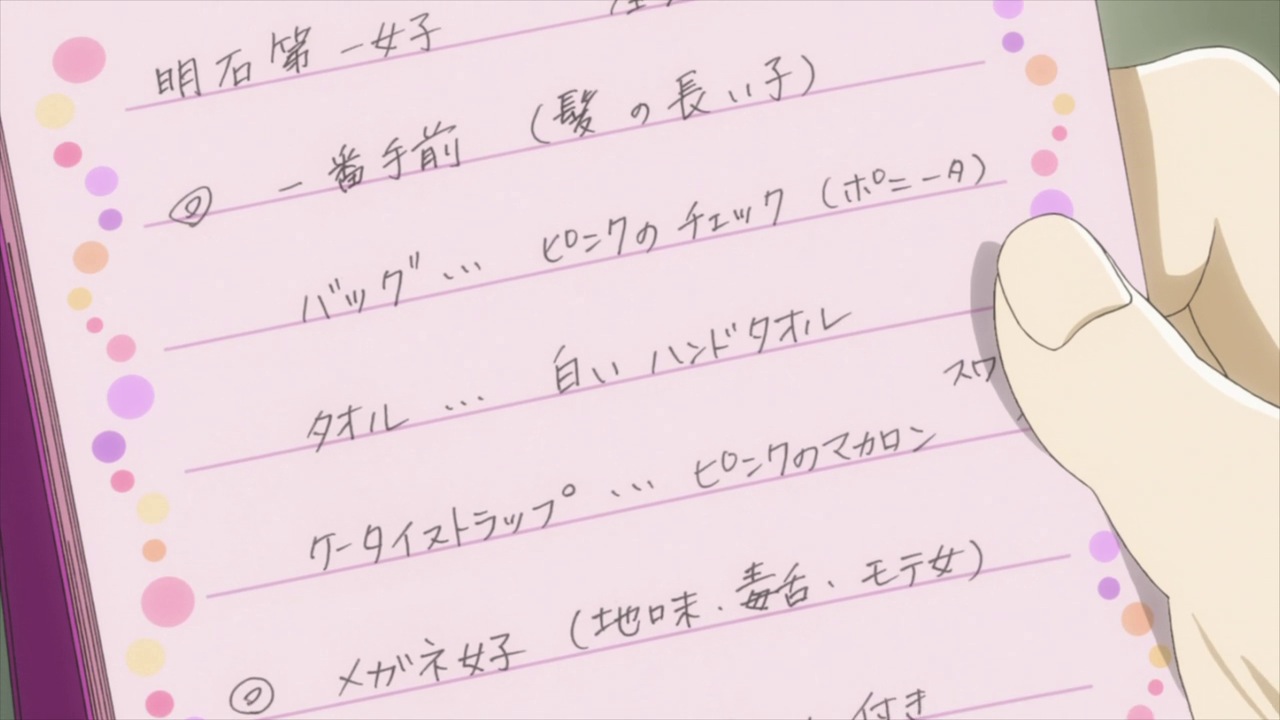 明石第一女子
◎ 一番手前 (髪の長い子)
バッグ… ピンクのチェック (ポニータ)
タオル … 白いハンドタオル
スワ
ケータイストラップ … ピンクのマカロン
◎ メガネ女子 (地味、毒舌、モテ女)
付き